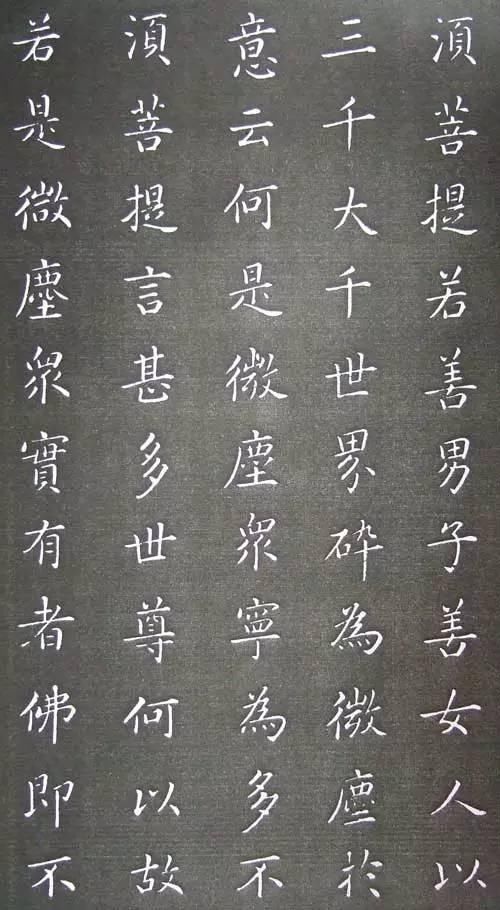 須菩提若善男子善女人以
三千大千世界碎為微塵於
意云何是微塵眾寧為多不
須菩提言甚多世尊何以故
若是微塵眾實有者佛即不